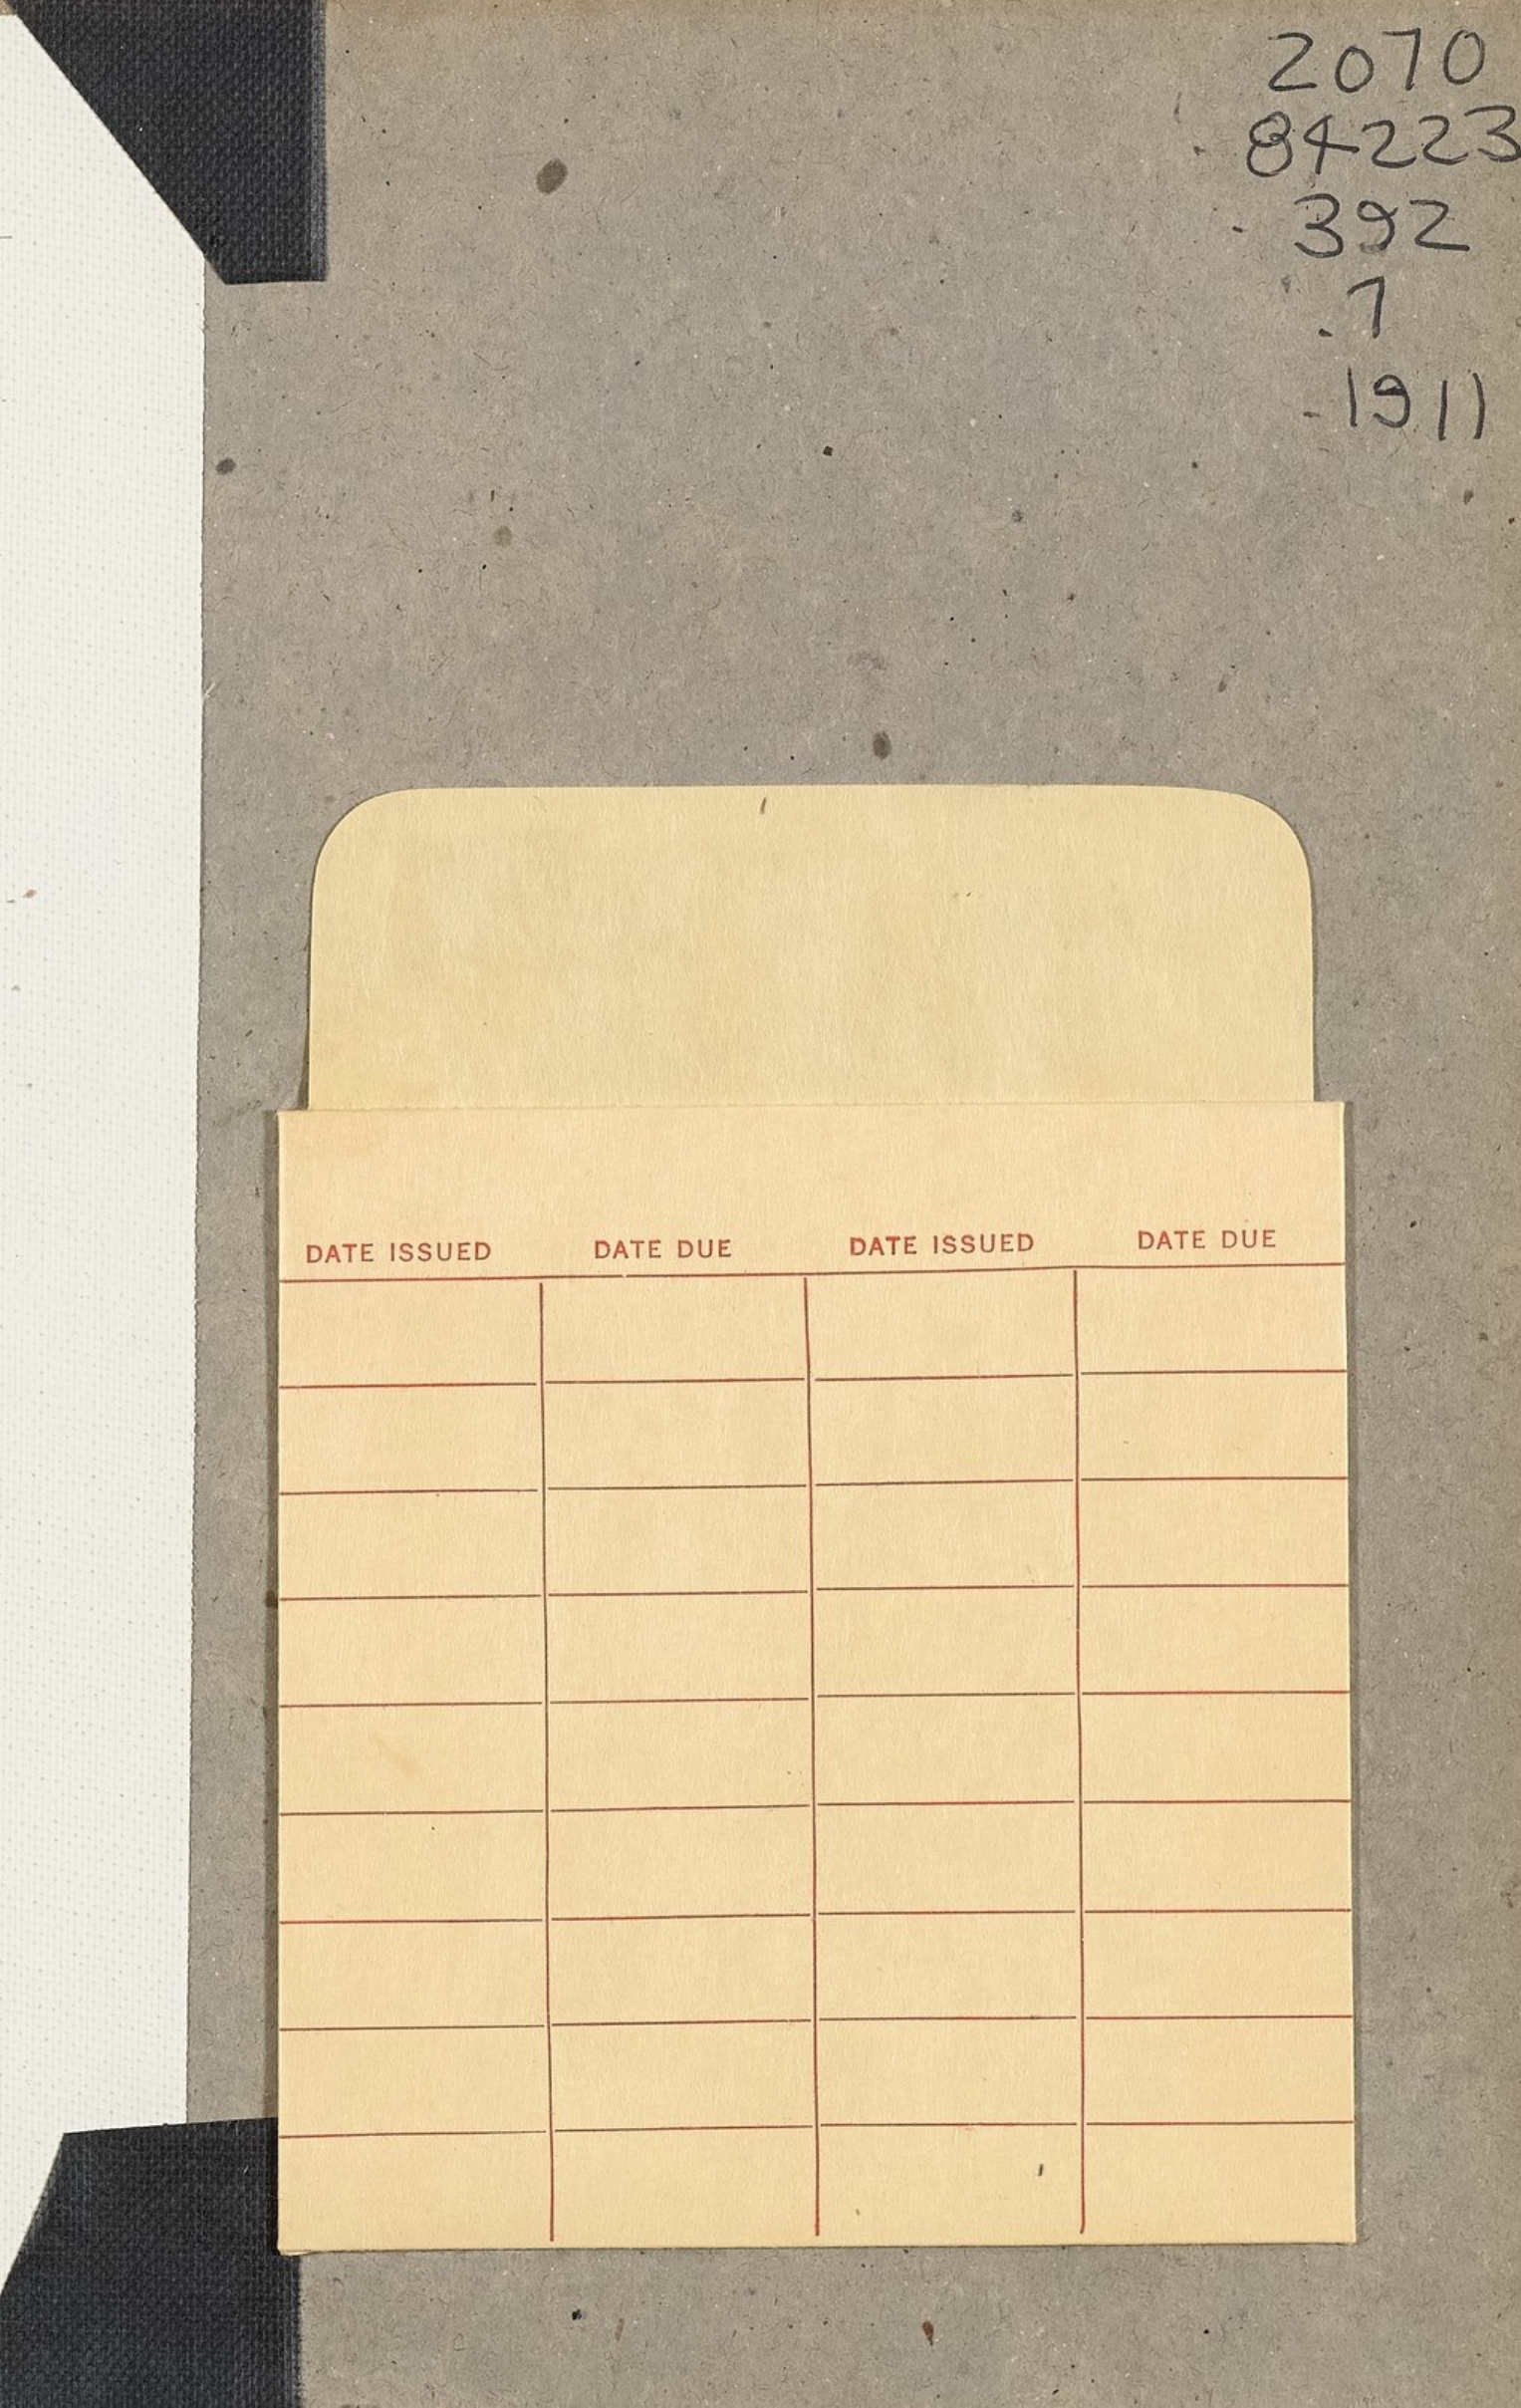 2070
84223
.392
.7
.1911
DATE ISSUED DATE DUE DATE ISSUED DATE DUE